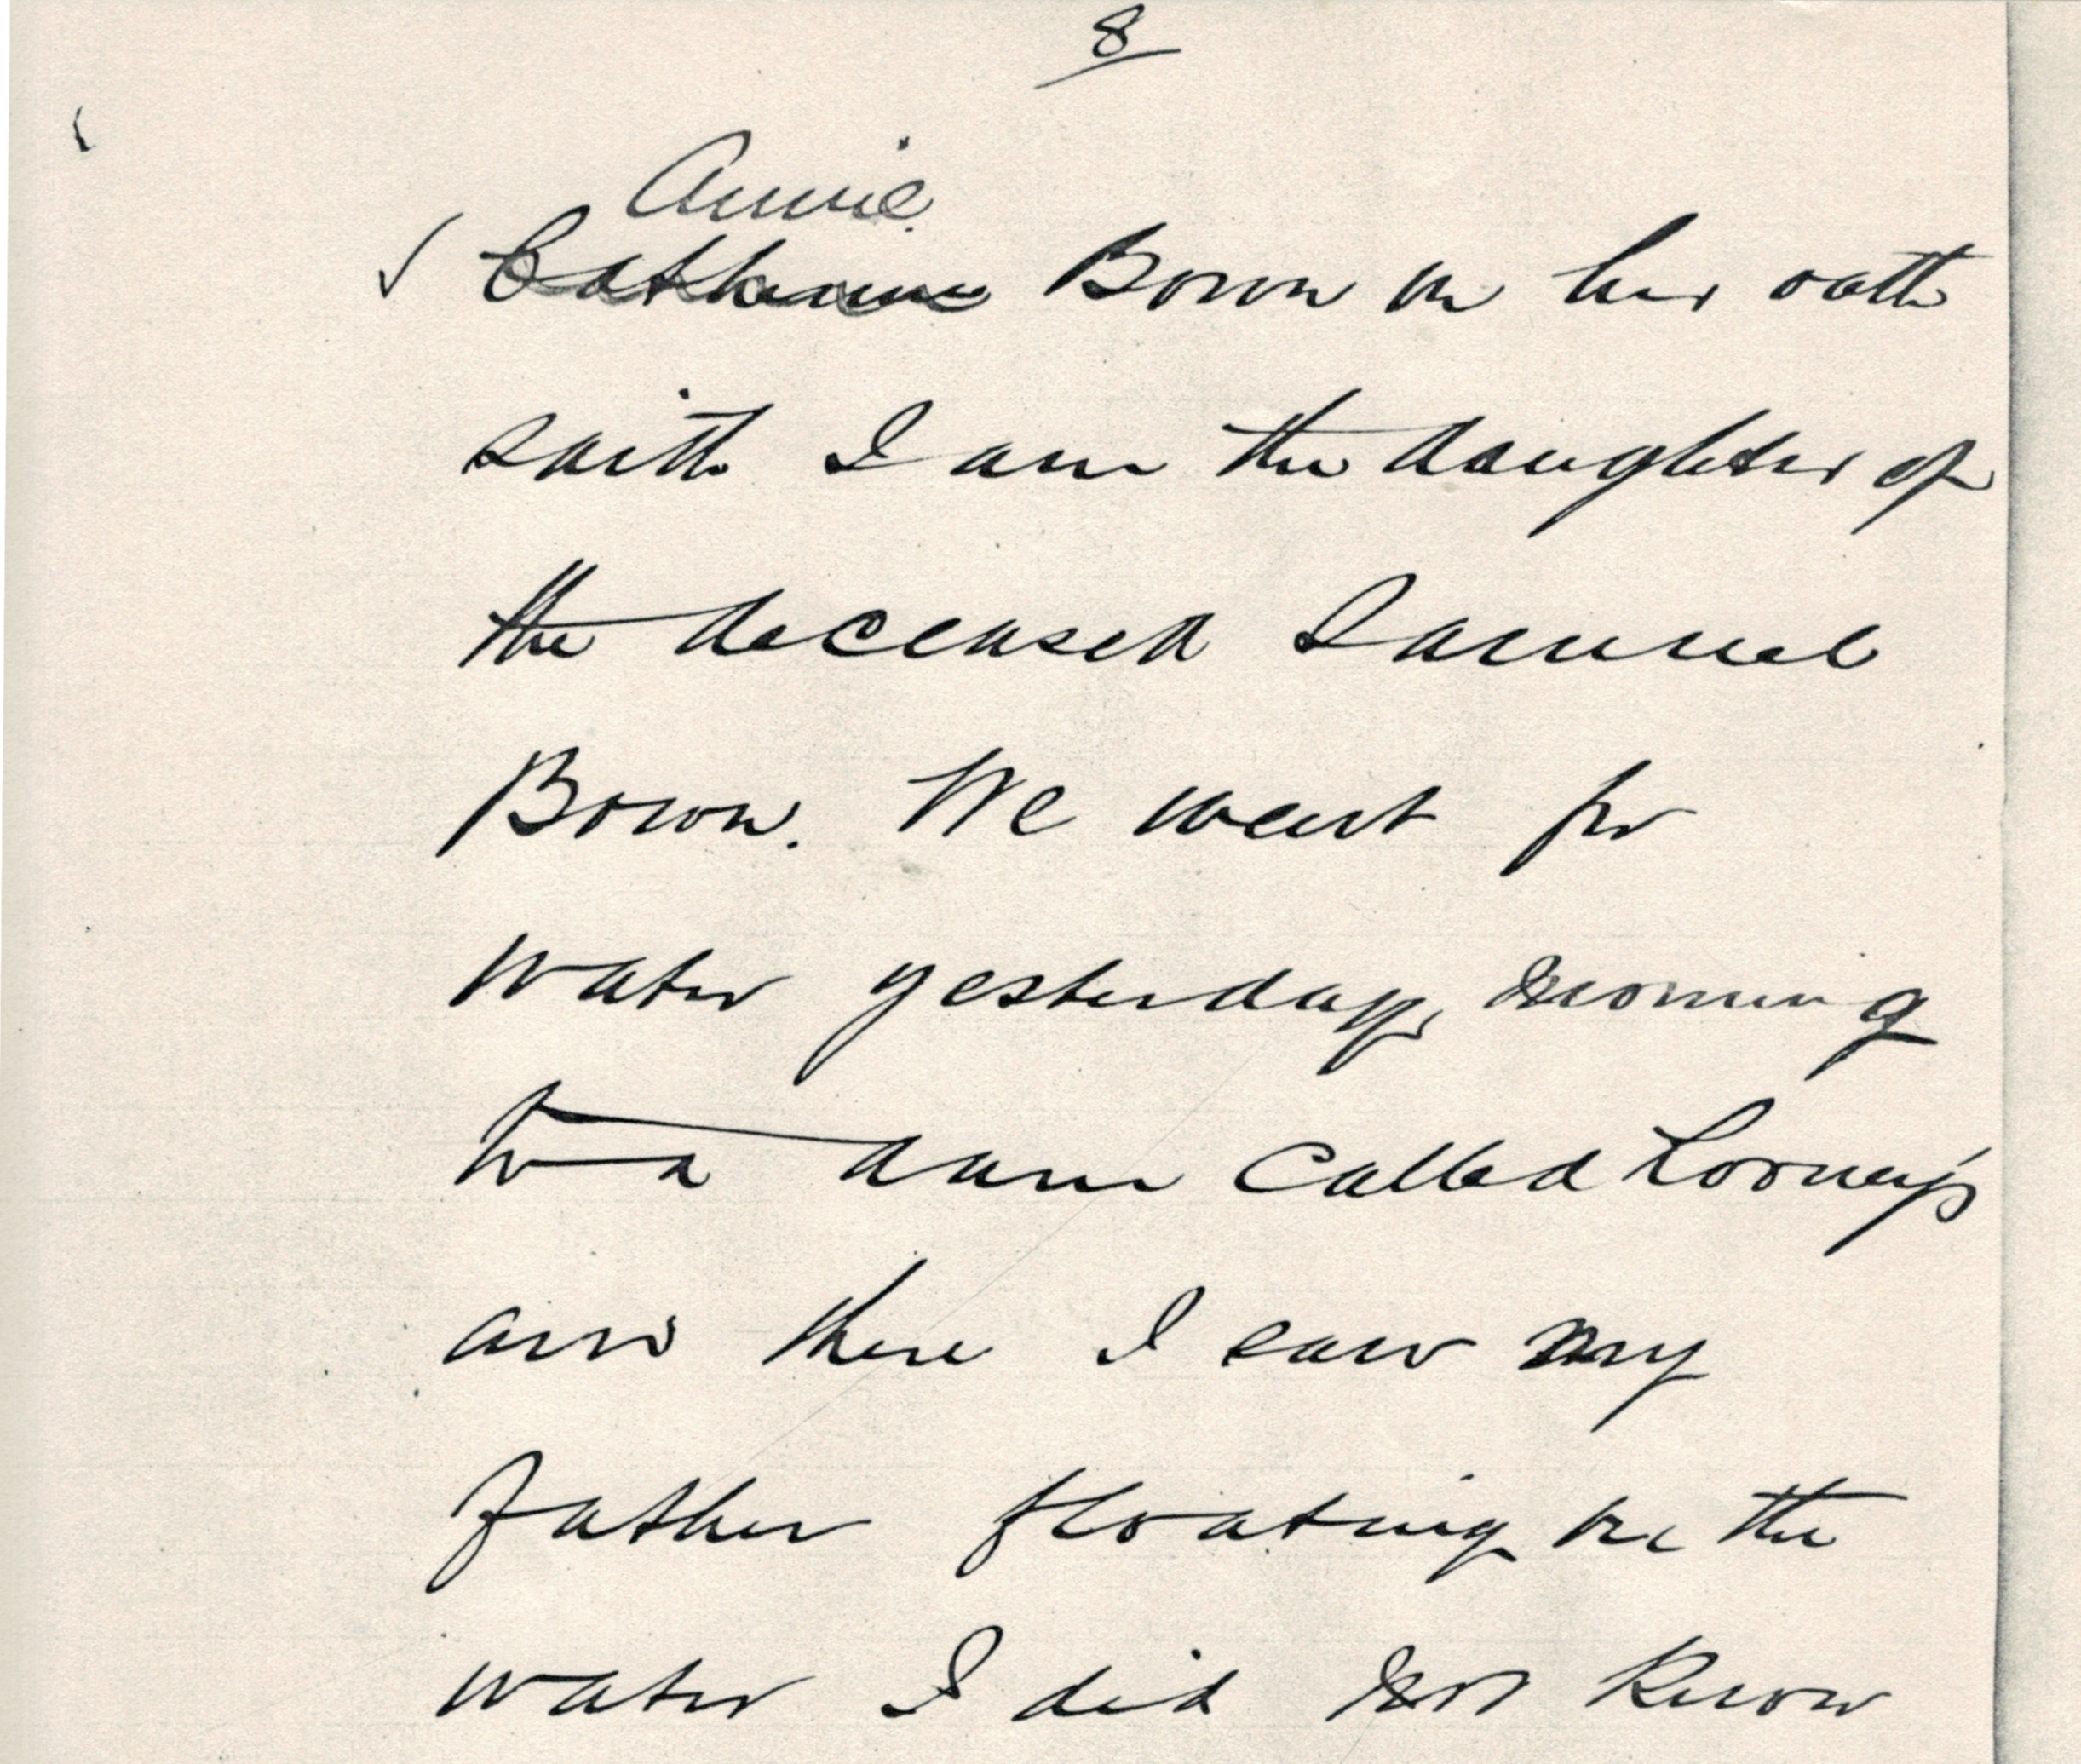 8
Annie
Catherine Bown on her oath
saith I am the daughter of
the deceased Samuel
Bown. We went for
water yesterday morning
to a dam called Looney's
and there I saw my
Father floating on the
water I did not know